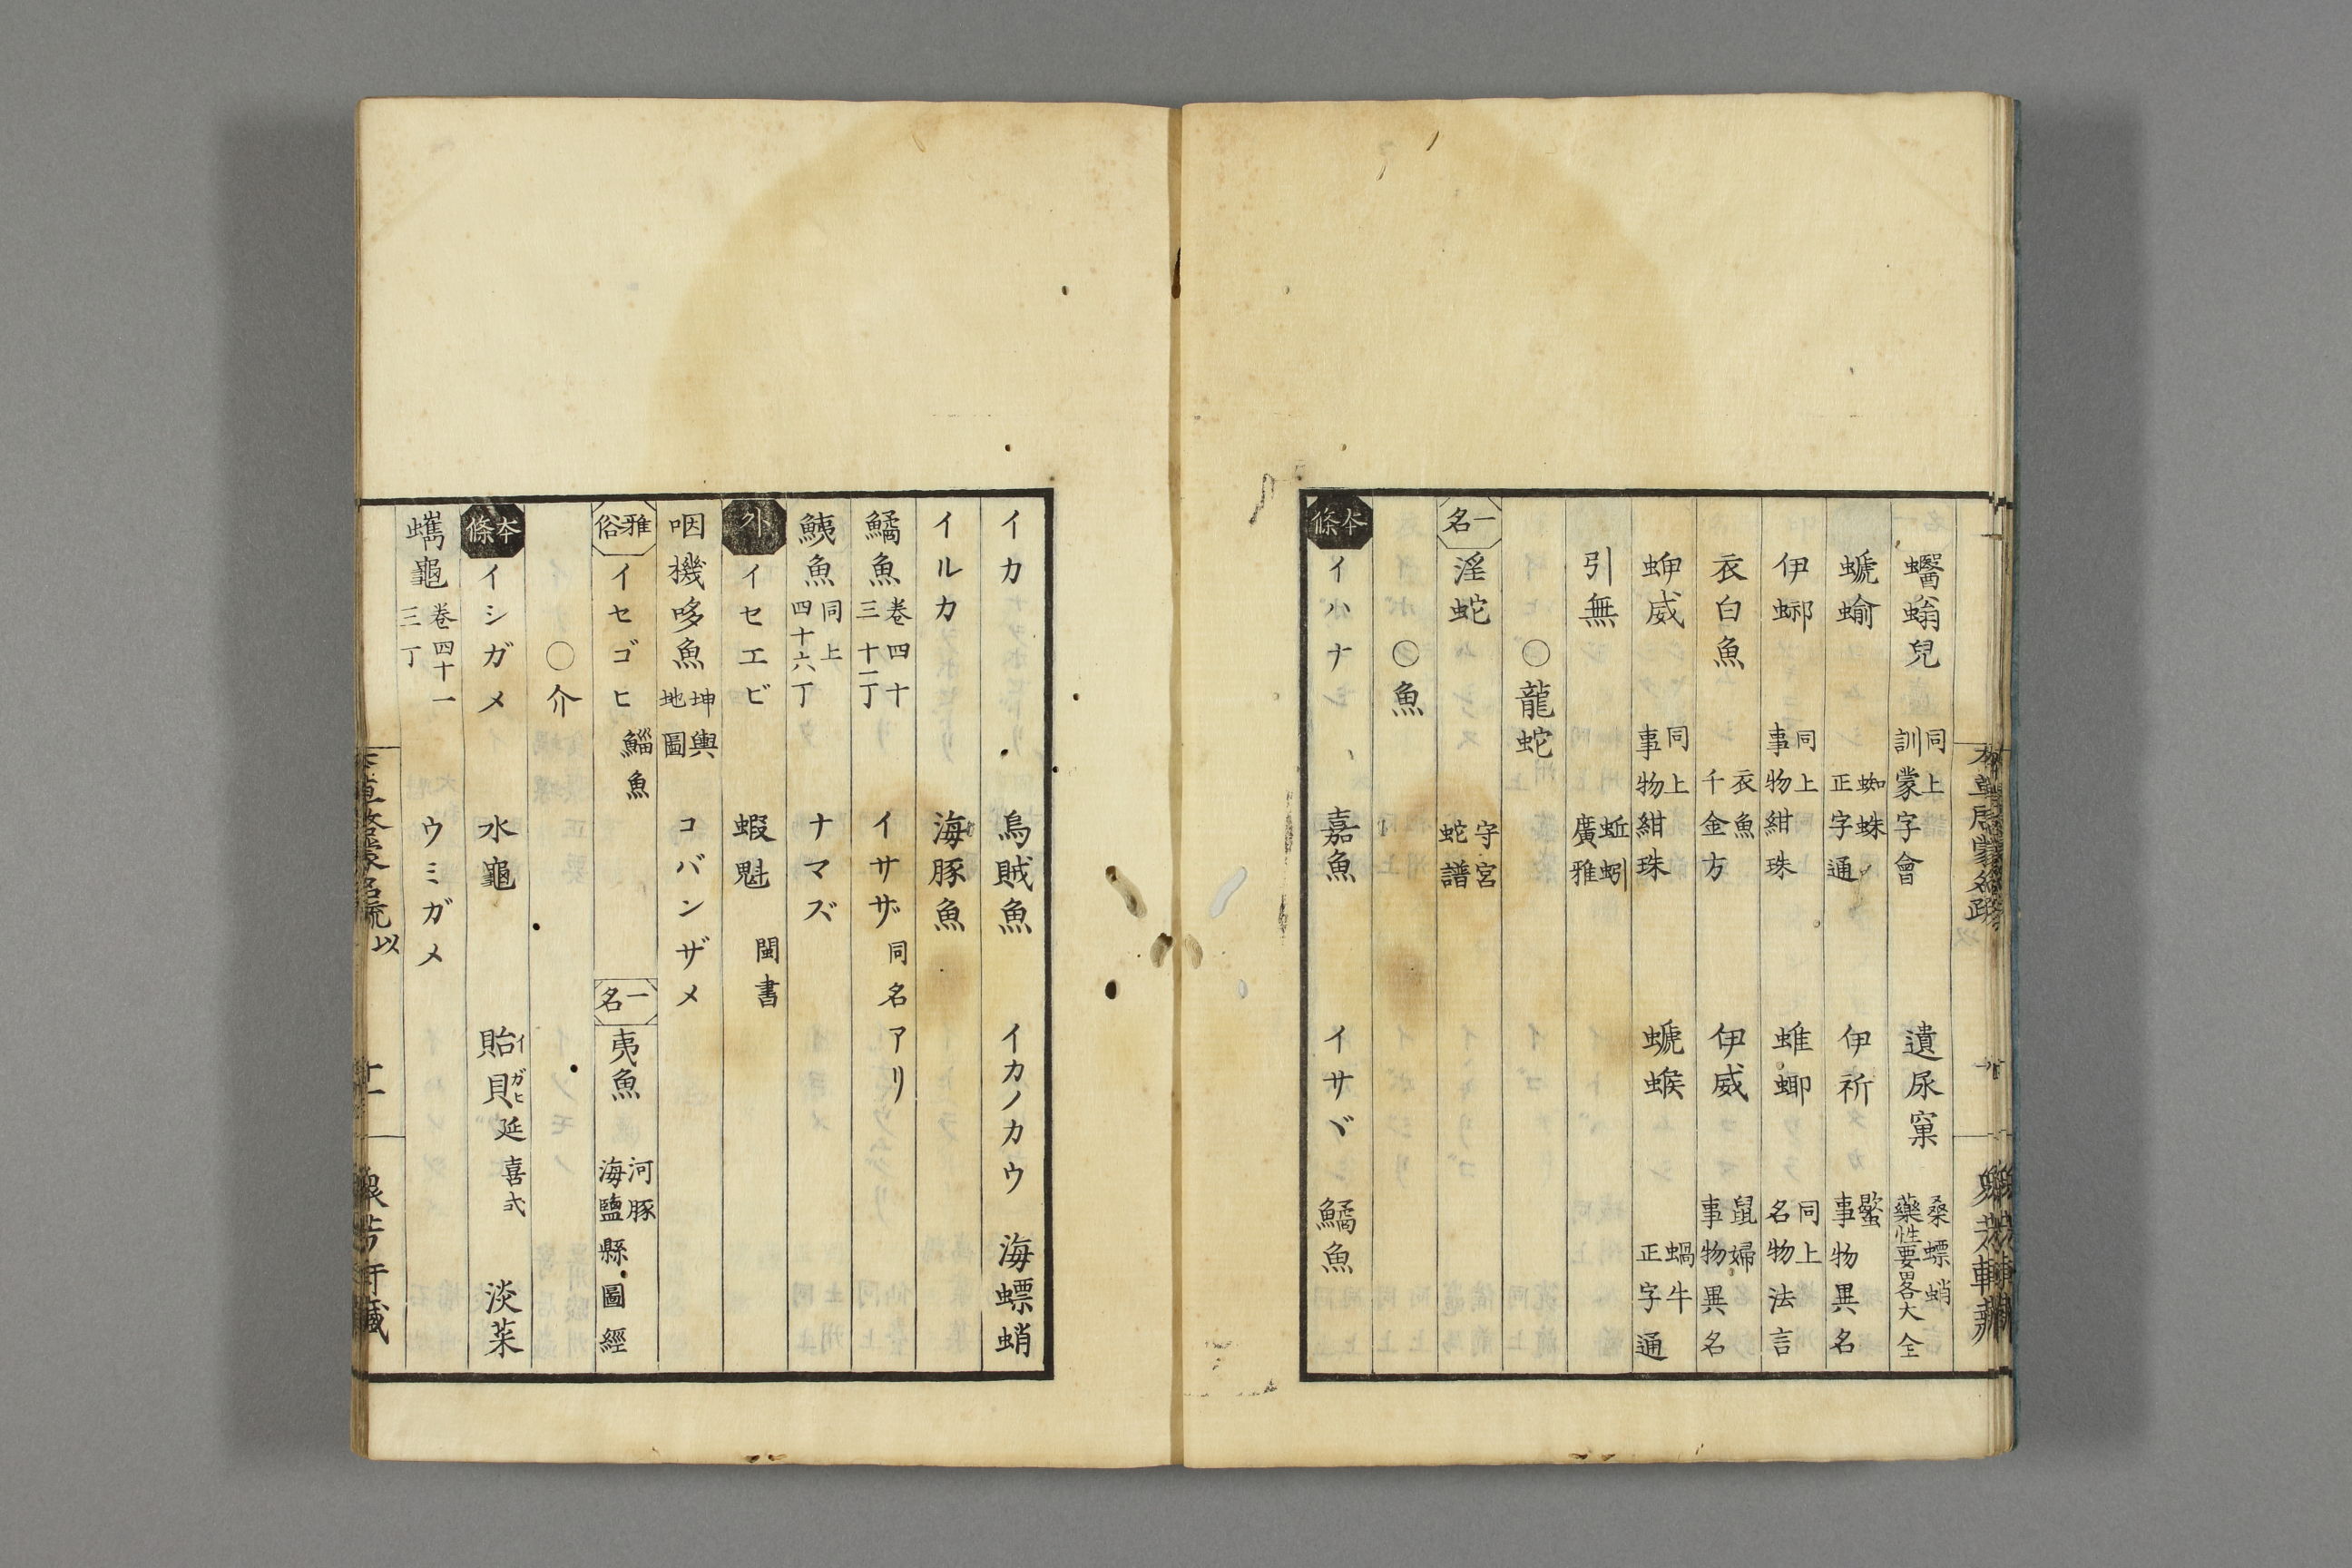 蠮螉兒 同上訓蒙字會 遺尿窠 桑螵蛸藥性要畧大全
螔蝓 蜘蛛正字通 伊祈 蠶事物異名
伊𧊧 同上事物紺珠 蜼蝍 同上名物法言
衣白魚 衣魚千金方 伊威 鼠婦事物異名
蛜威 同上事物紺珠 螔𧎥 蝸牛正字通
引無 蚯蚓廣雅
〇龍蛇
一名 淫蛇 守宮蛇譜
〇魚
本條 イハナシ、 嘉魚 イサヾ 鱊魚
イカ 烏賊魚 イカノカウ 海螵蛸
イルカ 海豚魚
鱊魚 卷四十四三十二丁 イサザ 同名アリ
鮧魚 同上四十六丁 ナマズ
外 イセエビ 蝦魁 閩書
咽機哆魚 坤輿地圖 コバンザメ
雅俗 イセゴヒ 鯔魚 一名 夷魚 河豚海鹽縣圖經
〇介
本條 イシガメ 水龜 貽貝イガヒ 延喜式 淡菜
蠵龜 卷四十一三丁 ウミガメ
以